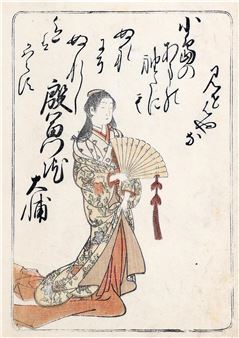 見せはやな
小嶋の
あまの
袖たに
も
ぬれ
にそ
ぬれし
色は
殷富門院
大輔